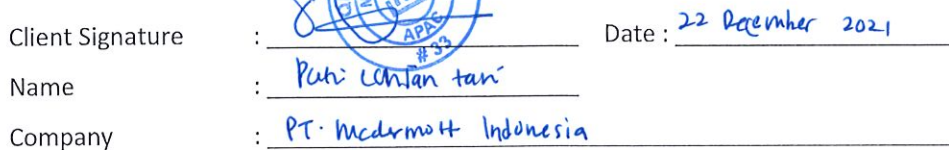 Client Signature : APAC #33 Date : 22 December 2021
Name : Putri
Company : PT. Mcdermott Indonesia